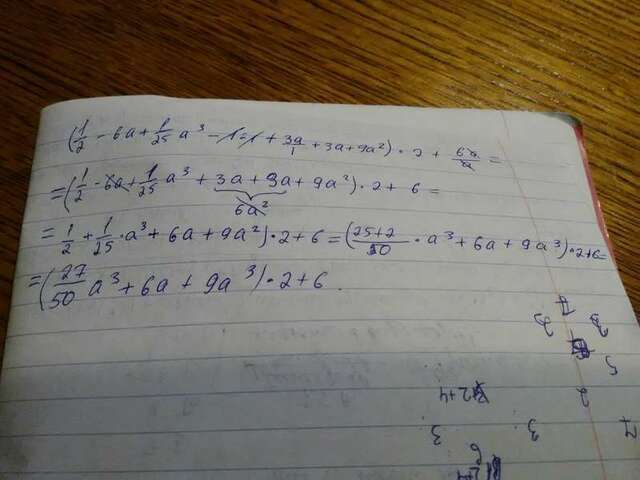 (1/2 - 6a + 1/25 a³ - 1 = 1 + 3a/1 + 3a + 9a²) • 2 + 6a/a =
= (1/2 - 6a + 1/25 a³ + 3a + 3a + 9a²) • 2 + 6 =
6a²
= 1/2 + 1/25 • a³ + 6a + 9a²) • 2 + 6 = (25+2/50 • a³ + 6a + 9a³) • 2 + 6 =
= (27/50 a³ + 6a + 9a³) • 2 + 6.
5
2
2+4
7
3
3
6